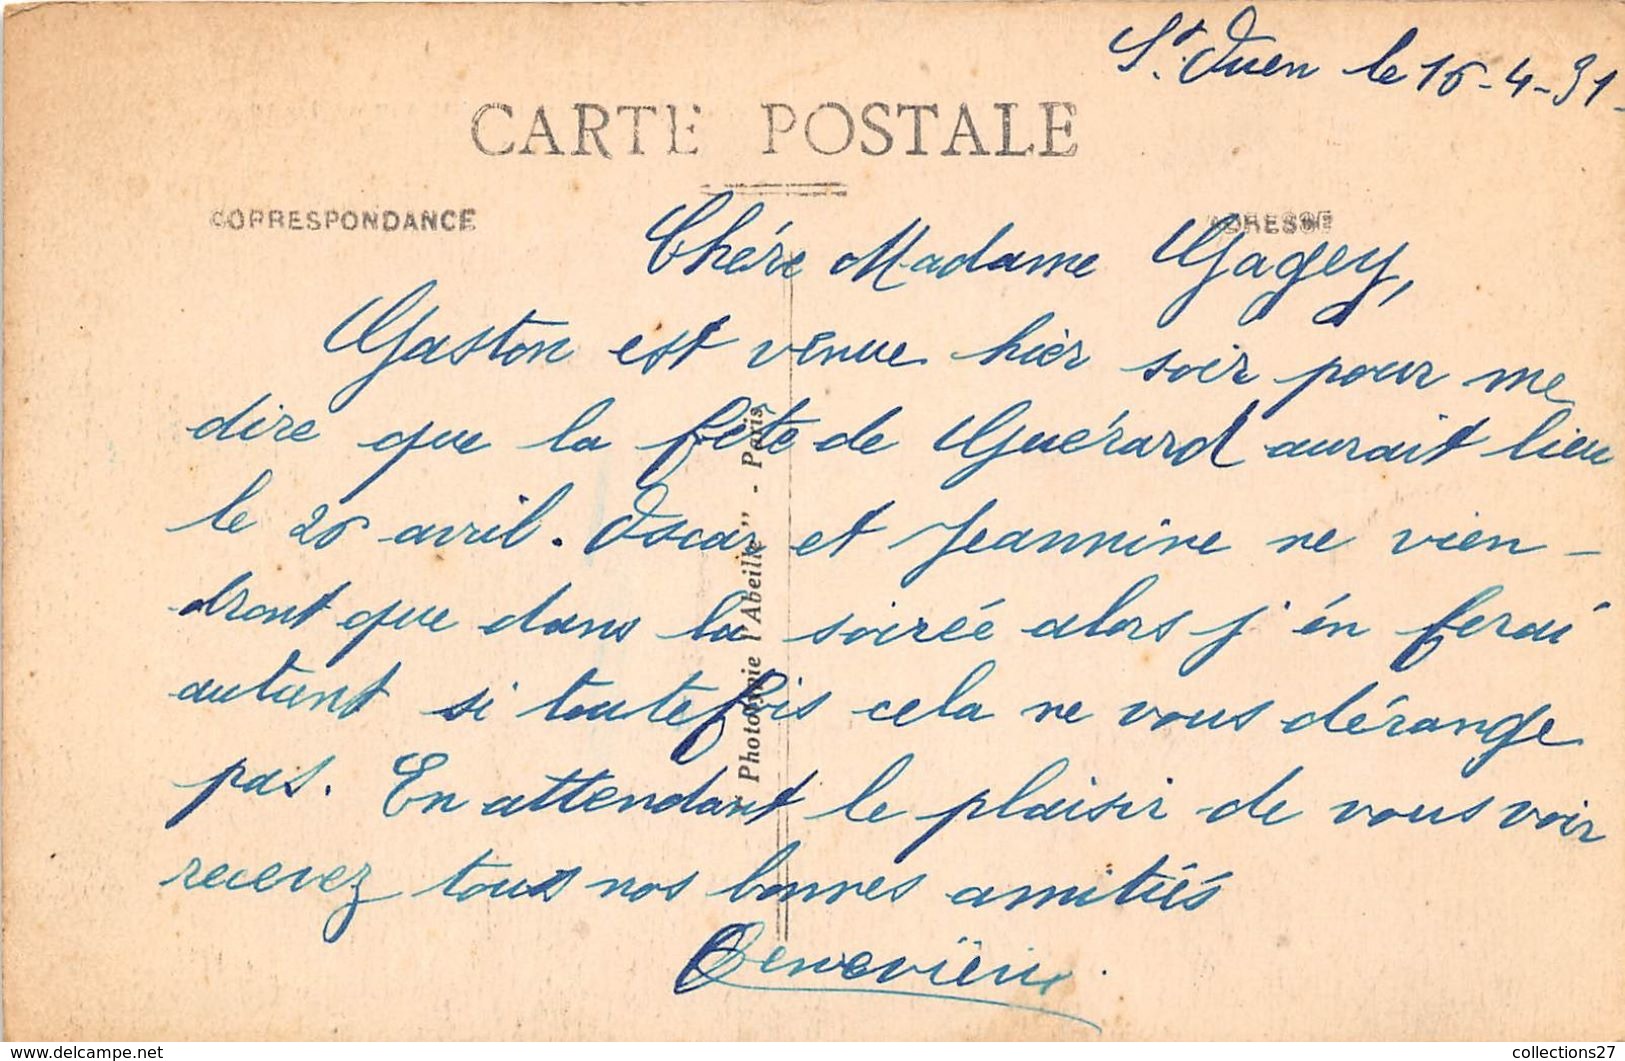 St. Ouen le 16-4-31-
CARTE POSTALE
CORRESPONDANCE
ADRESSE
Chére Madame Gagey,
Gaston est venue hier soir pour me
dire que la fête de Guérard aurait lieu
le 26 avril. Oscar et Jeannine ne vien-
dront que dans la soireé alors j'én ferai
autant si toutefois cela ne vous dérange
pas. En attendant le plaisir de vous voir
recevez tous nos bonnes amitiés
Geneviève
Phototypie "l'Abeille" - Paris
collections27